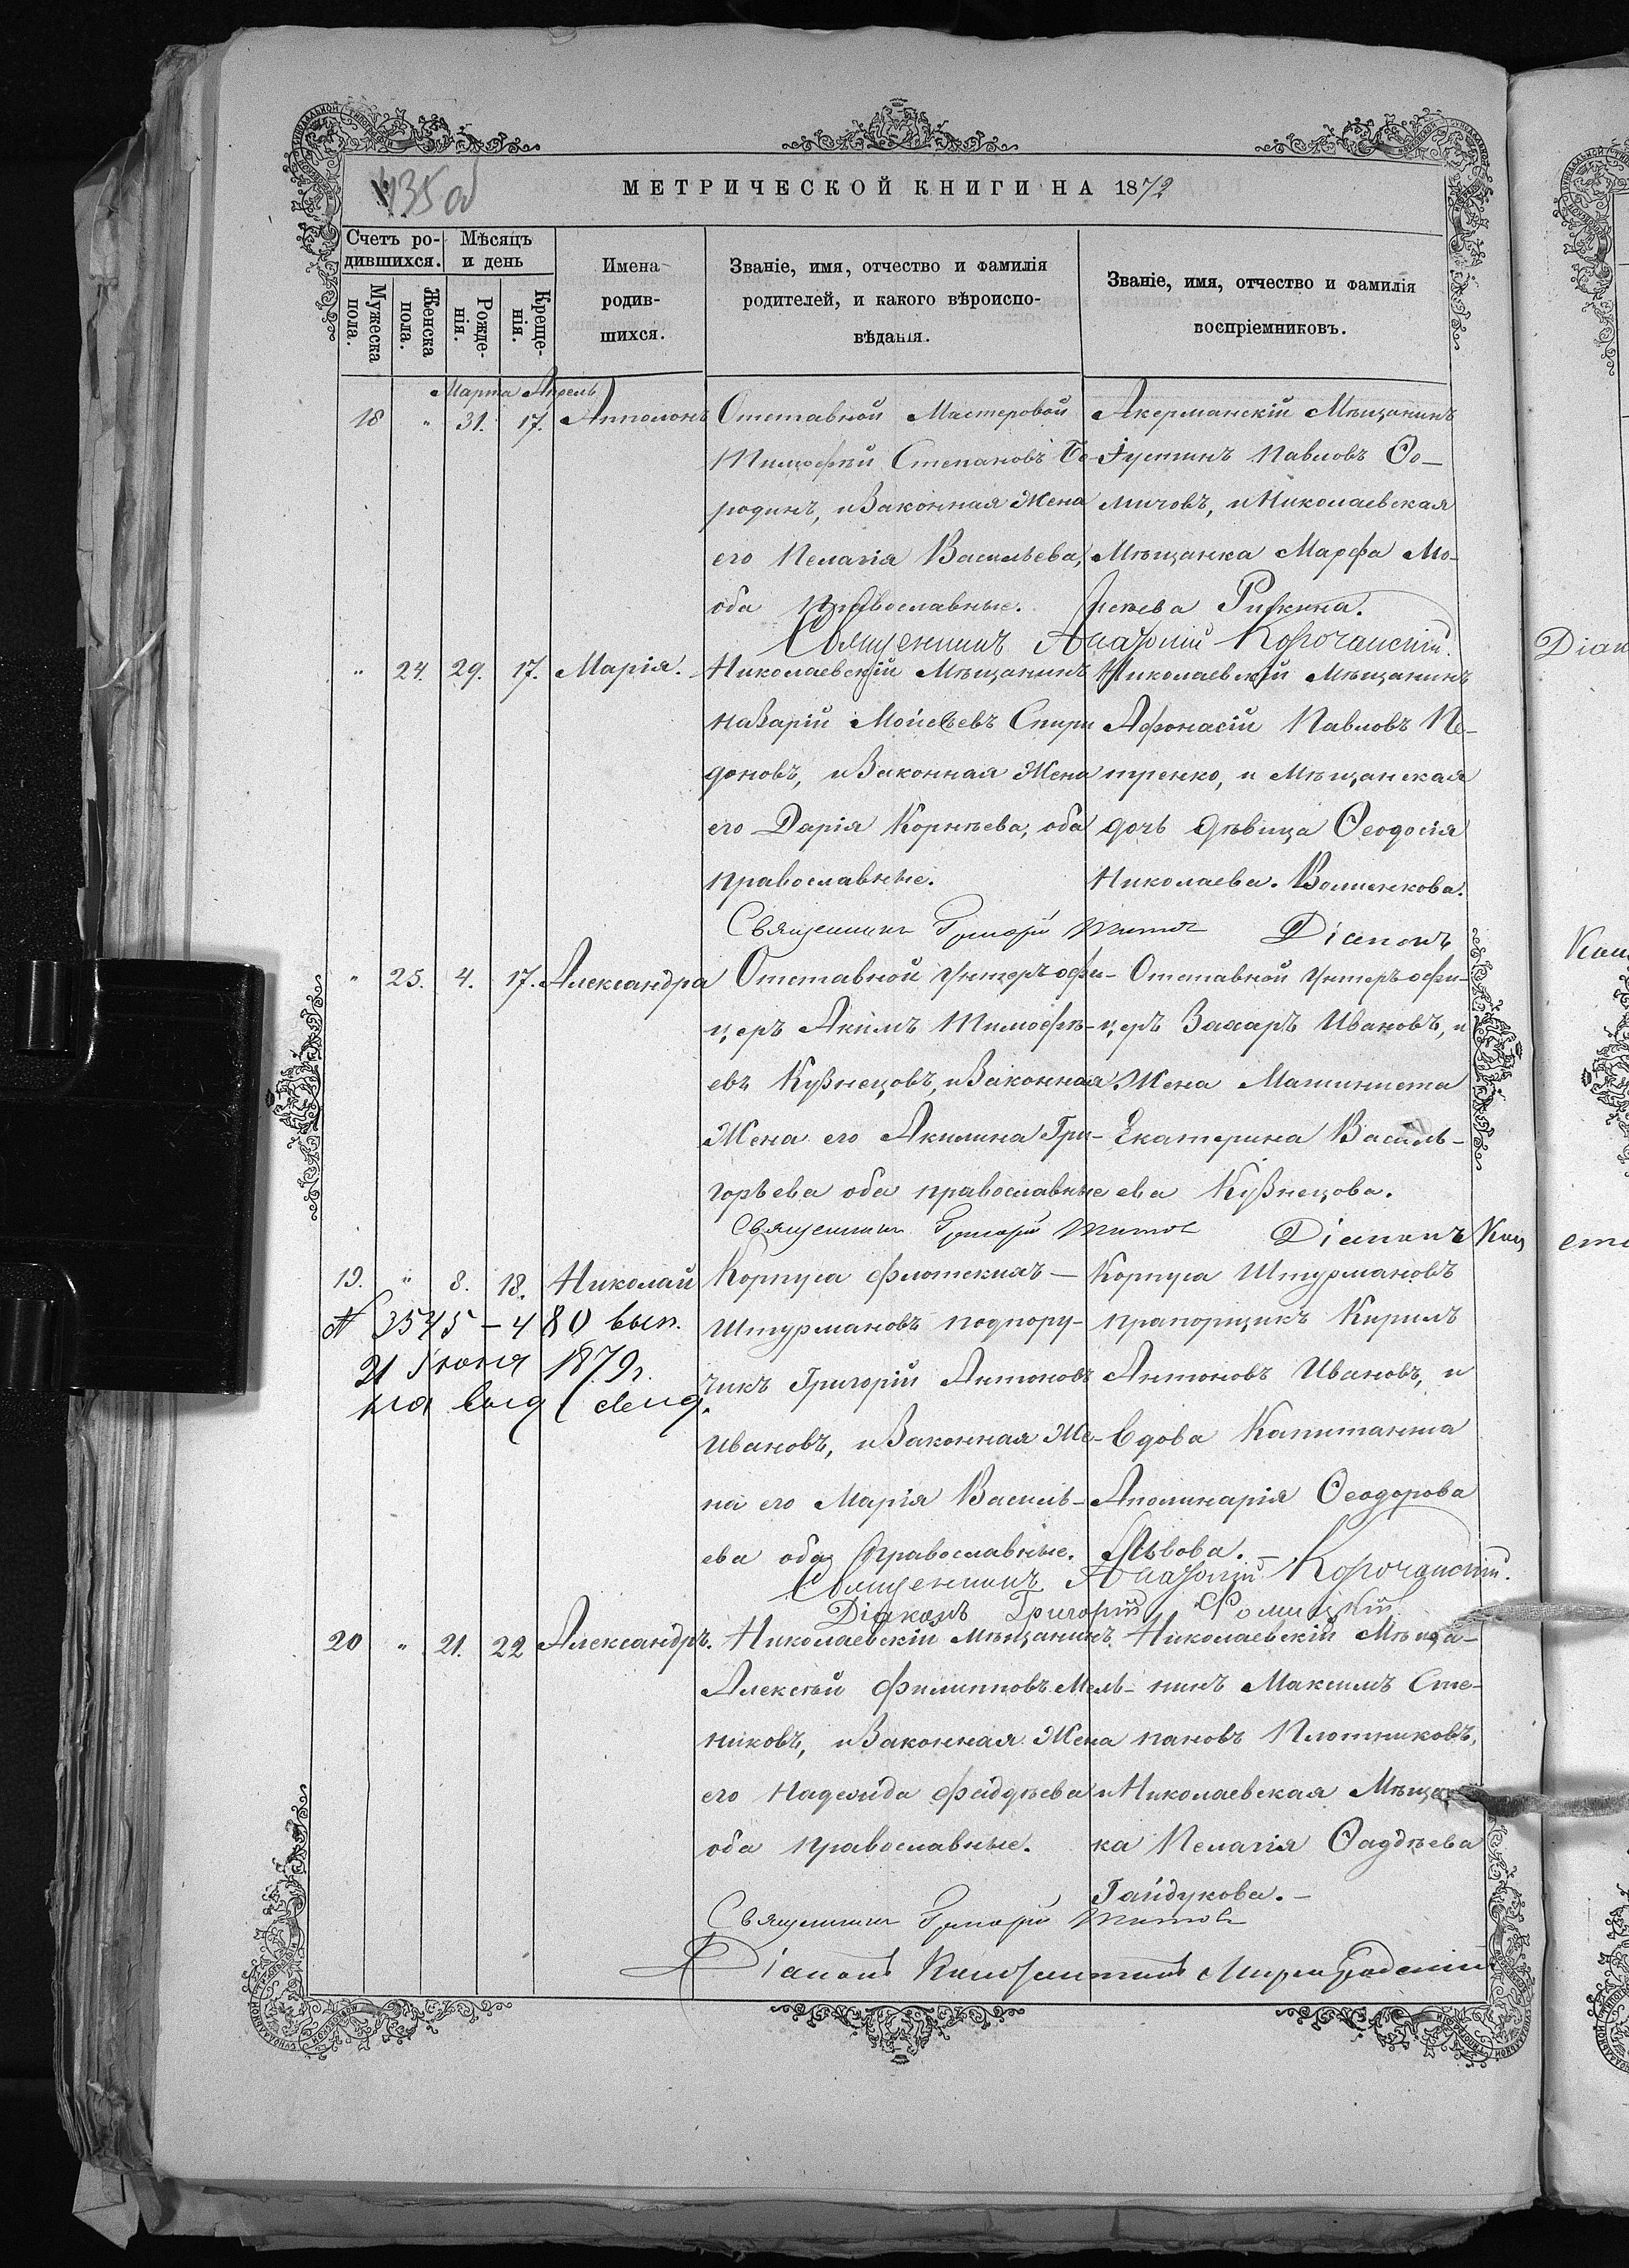 435 об
МЕТРИЧЕСКОЙ КНИГИ НА 1872
Счетъ ро-
дившихся.
Мужеска
пола.
Женска
пола.
Мѣсяцъ
и день
Рожде-
нія.
Креще-
нія.
Имена
родив-
шихся.
Званіе, имя, отчество и фамилія
родителей, и какого вѣроиспо-
вѣданія.
Званіе, имя, отчество и фамилія
воспріемниковъ.
Марта Апрель
18 " 31. 17. Апполонъ
Отставной Мастеровой
Тимофѣй Степановъ Бо-
родинъ, и Законная Жена
его Пелагія Васильева,
оба православные.
Акерманскій Мѣщанинъ
Іустинъ Павловъ Ѳо-
мичовъ, и Николаевская
Мѣщанка Марфа Мо-
Священникъ Корочанскій.
" 24. 29. 17. Марія.
Николаевскій Мѣщанинъ
Назарій Моисеевъ Спири
доновъ, и Законная Жена
его Дарія Корнѣева, оба
православные.
Николаевскій Мѣщанинъ
Афонасій Павловъ Пе-
тренко, и Мѣщанская
дочь дѣвица Ѳеодосія
Николаева.
Священникъ Григорій Титовъ Діаконъ
" 25. 4. 17. Александра
Отставной Унтеръ офи-
церъ Акимъ Тимофѣ-
евъ Кузнецовъ, и Законная
Жена его Акилина Гри-
горьева оба православные
Отставной Унтеръ офи-
церъ Захаръ Ивановъ, и
Жена Машиниста
Екатерина Василь-
ева Кузнецова.
Священникъ Григорій Титовъ Діаконъ
19. " 8. 18. Николай
№ 3545 – 480 вып.
21 Іюня 1879г.
на выд свид.
Корпуса флотскихъ
Штурмановъ подпору-
чикъ Григорій Антоновъ
Ивановъ, и Законная Же-
на его Марія Василь-
ева оба Православные.
Корпуса Штурмановъ
прапорщикъ Кирилъ
Антоновъ Ивановъ, и
Вдова Капитанша
Аполинарія Ѳеодорова
Львова.
Священникъ Корочанскій.
Діаконъ Григорій Ѳомицкій
20 " 21. 22 Александръ.
Николаевскій мѣщанинъ
Алексѣй Филипповъ Мель-
никовъ, и Законная Жена
его Надежда Фаддѣева
оба православные.
Николаевскій Мѣща-
нинъ Максимъ Сте-
пановъ Плотниковъ,
и Николаевская Мѣщан
ка Пелагія Ѳаддѣева
Гайдукова.
Священникъ Григорій Титовъ
Діаконъ